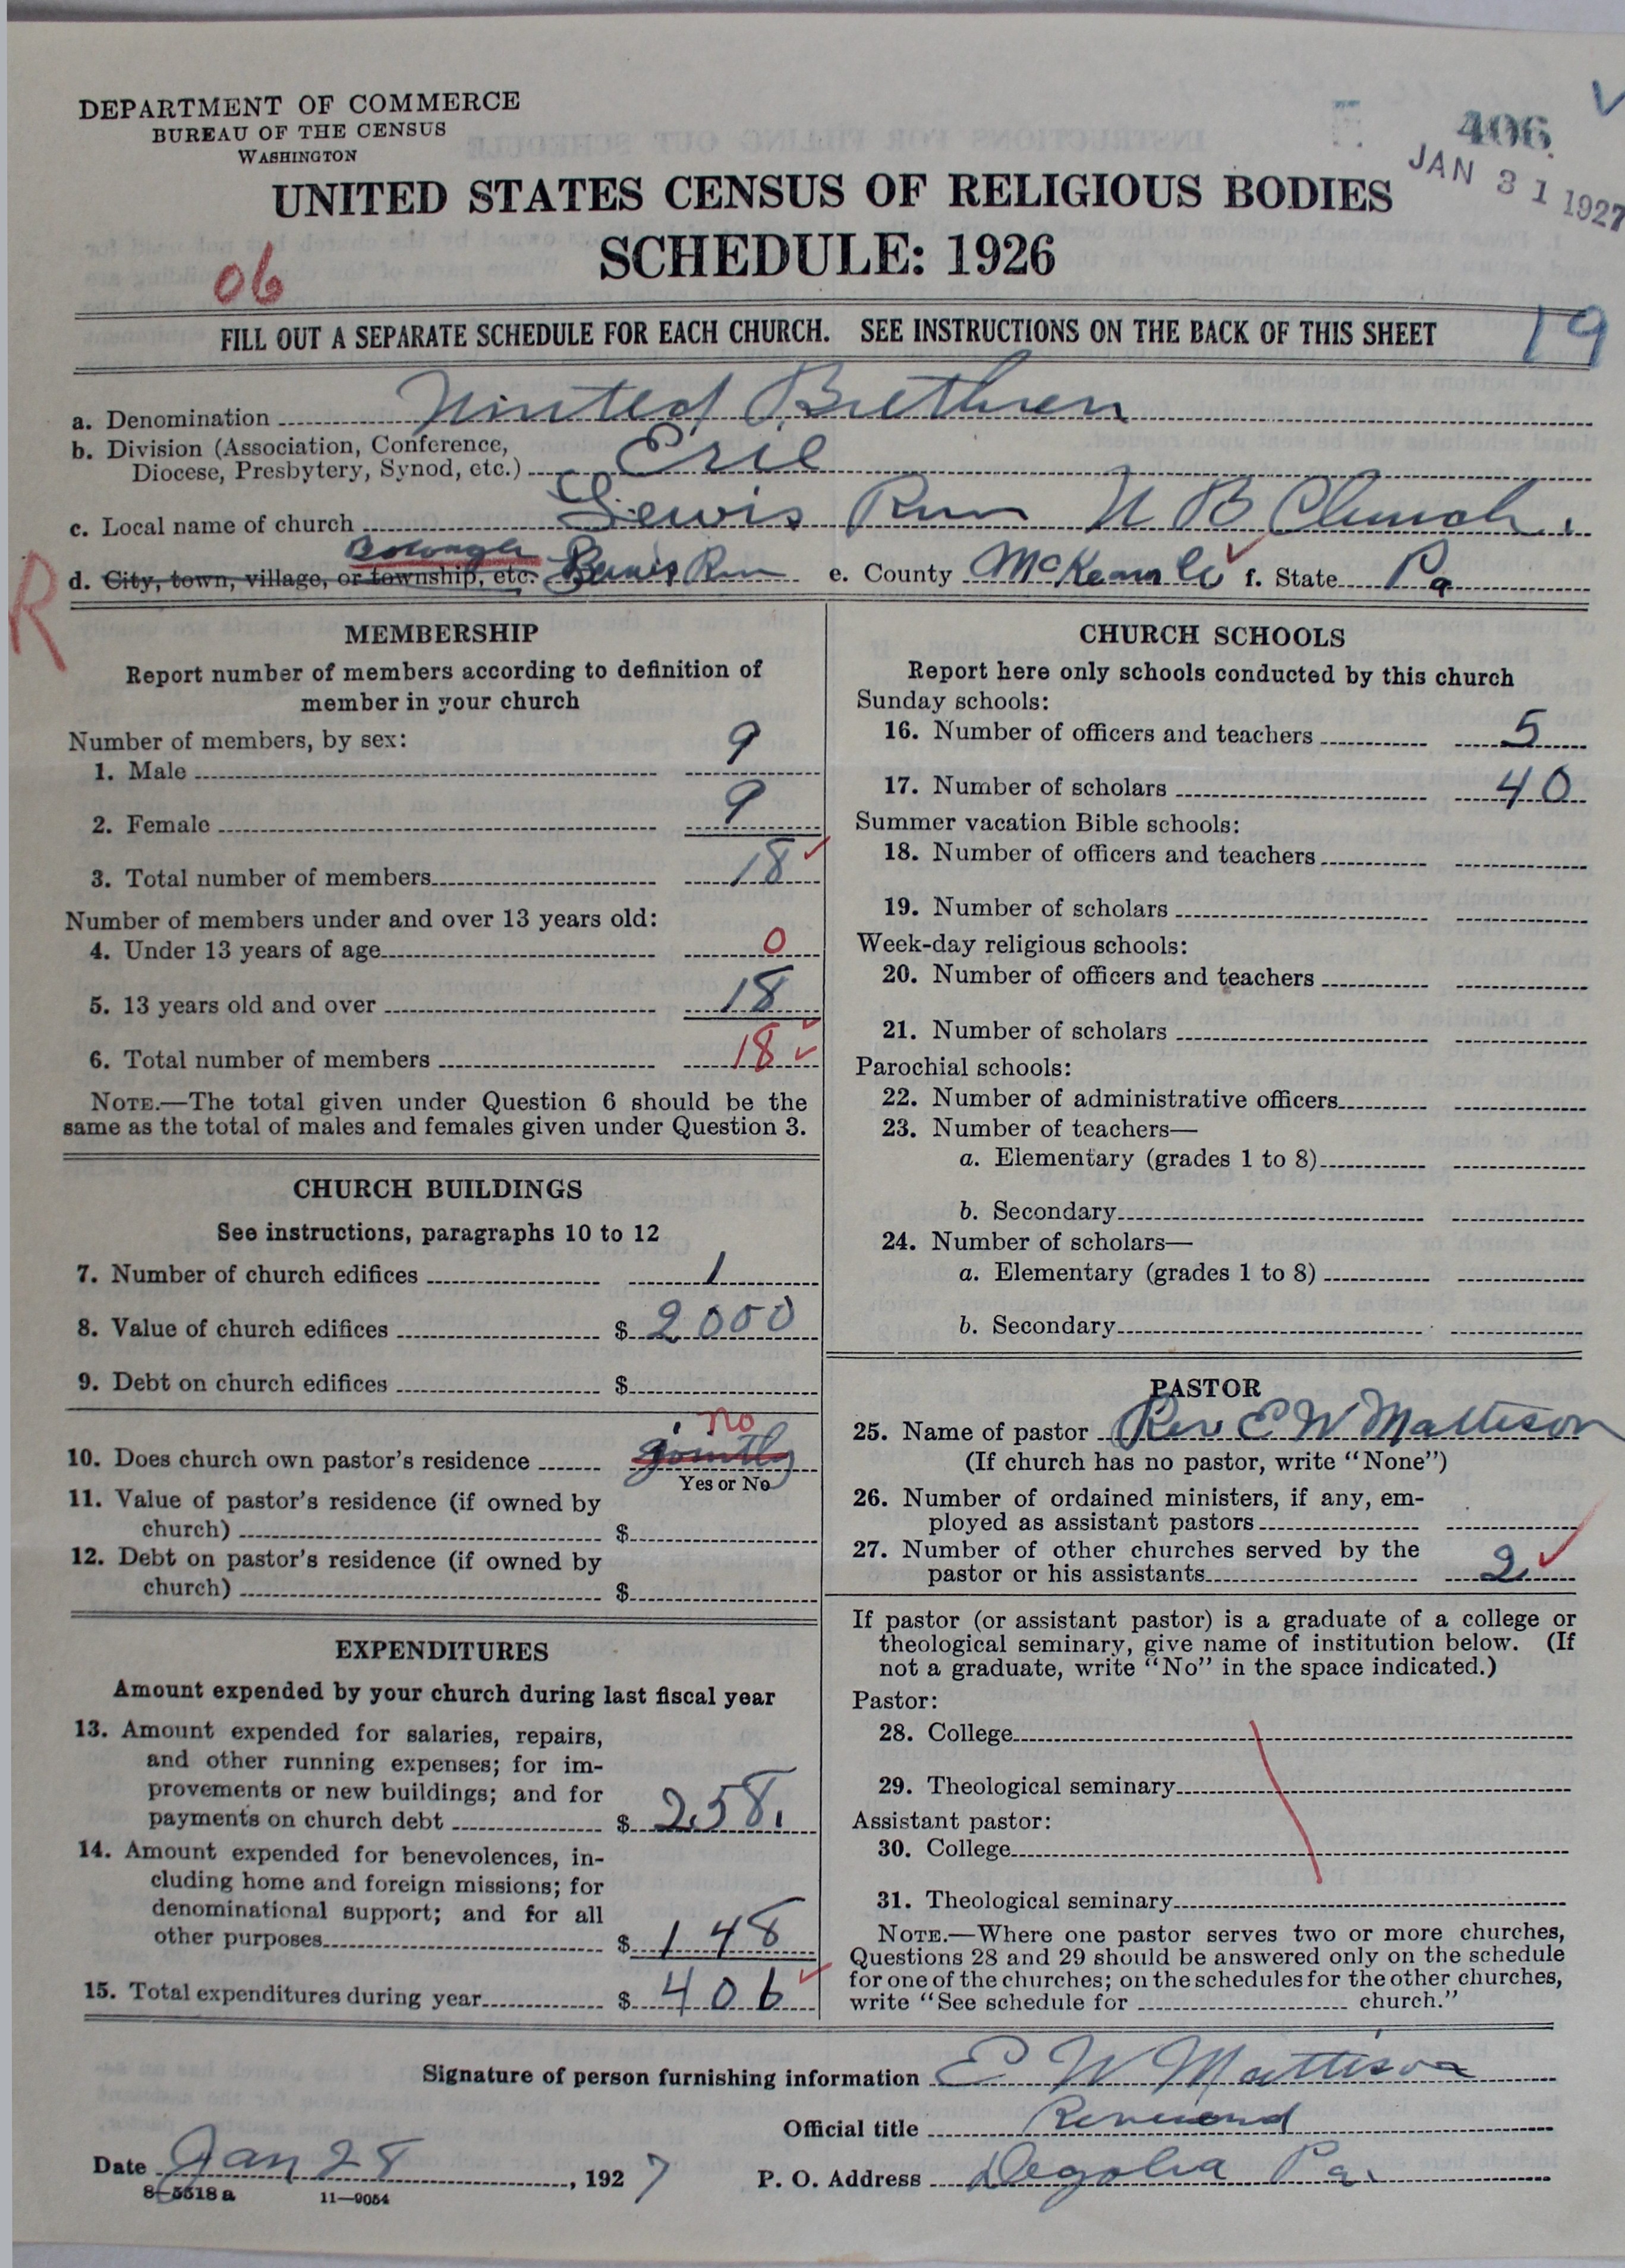 DEPARTMENT OF COMMERCE
BUREAU OF THE CENSUS
WASHINGTON
406
JAN 31 1927
UNITED STATES CENSUS OF RELIGIOUS BODIES
SCHEDULE: 1926
06
FILL OUT A SEPARATE SCHEDULE FOR EACH CHURCH. SEE INSTRUCTIONS ON THE BACK OF THIS SHEET
19
a. Denomination United Brethren
b. Division (Association, Conference,
Diocese, Presbytery, Synod, etc.) Erie
c. Local name of church Lewis Run U B Church.
Borough
R
d. City, town, village, or township, etc. Lewis Run e. County McKean f. State Pa
MEMBERSHIP
Report number of members according to definition of
member in your church
Number of members, by sex:
1. Male 9
2. Female 9
3. Total number of members 18
Number of members under and over 13 years old:
4. Under 13 years of age 0
5. 13 years old and over 18
6. Total number of members 18
NOTE.—The total given under Question 6 should be the
same as the total of males and females given under Question 3.
CHURCH BUILDINGS
See instructions, paragraphs 10 to 12
7. Number of church edifices 1
8. Value of church edifices $ 2000
9. Debt on church edifices $
no
10. Does church own pastor's residence jointly
Yes or No
11. Value of pastor's residence (if owned by
church) $
12. Debt on pastor's residence (if owned by
church) $
EXPENDITURES
Amount expended by your church during last fiscal year
13. Amount expended for salaries, repairs,
and other running expenses; for im-
provements or new buildings; and for
payments on church debt $ 258.
14. Amount expended for benevolences, in-
cluding home and foreign missions; for
denominational support; and for all
other purposes $ 148
15. Total expenditures during year $ 406
CHURCH SCHOOLS
Report here only schools conducted by this church
Sunday schools:
16. Number of officers and teachers 5
17. Number of scholars 40
Summer vacation Bible schools:
18. Number of officers and teachers
19. Number of scholars
Week-day religious schools:
20. Number of officers and teachers
21. Number of scholars
Parochial schools:
22. Number of administrative officers
23. Number of teachers—
a. Elementary (grades 1 to 8)
b. Secondary
24. Number of scholars—
a. Elementary (grades 1 to 8)
b. Secondary
PASTOR
25. Name of pastor Rev E W Mattison
(If church has no pastor, write "None")
26. Number of ordained ministers, if any, em-
ployed as assistant pastors
27. Number of other churches served by the
pastor or his assistants 2
If pastor (or assistant pastor) is a graduate of a college or
theological seminary, give name of institution below. (If
not a graduate, write "No" in the space indicated.)
Pastor:
28. College
29. Theological seminary
Assistant pastor:
30. College
31. Theological seminary
NOTE.—Where one pastor serves two or more churches,
Questions 28 and 29 should be answered only on the schedule
for one of the churches; on the schedules for the other churches,
write "See schedule for church."
Signature of person furnishing information E W Mattison
Official title Reverend
Date Jan 28, 1927 P. O. Address Degolia Pa.
8-5518 a 11-9054